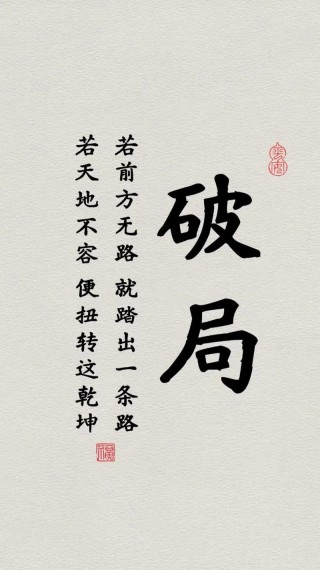 破局
若前方无路 就踏出一条路
若天地不容 便扭转这乾坤